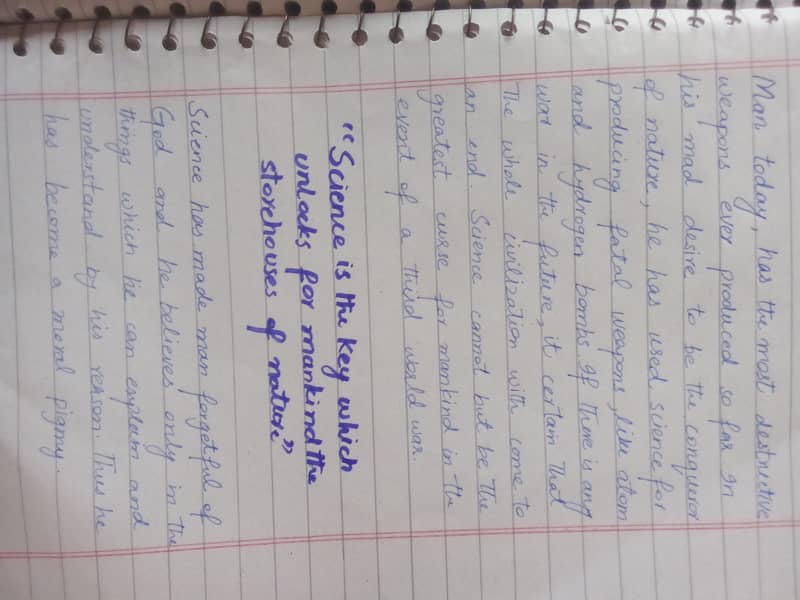 Man today, has the most destructive
weapons ever produced so far. In
his mad desire to be the conqueror
of nature, he has used science for
producing fatal weapons, like atom
and hydrogen bombs. If there is any
war in the future, it certain that
The whole civilization with come to
an end. Science cannot but be the
greatest curse for mankind in the
event of a third world war.
"Science is the key which
unlocks for mankind the
storehouses of nature"
Science has made man forgetful of
God and he believes only in the
things which he can explain and
understand by his reason. Thus he
has become a moral pigmy.